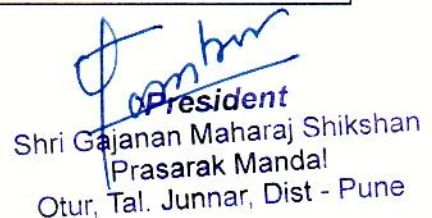 President
Shri Gajanan Maharaj Shikshan
Prasarak Mandal
Otur, Tal. Junnar, Dist - Pune